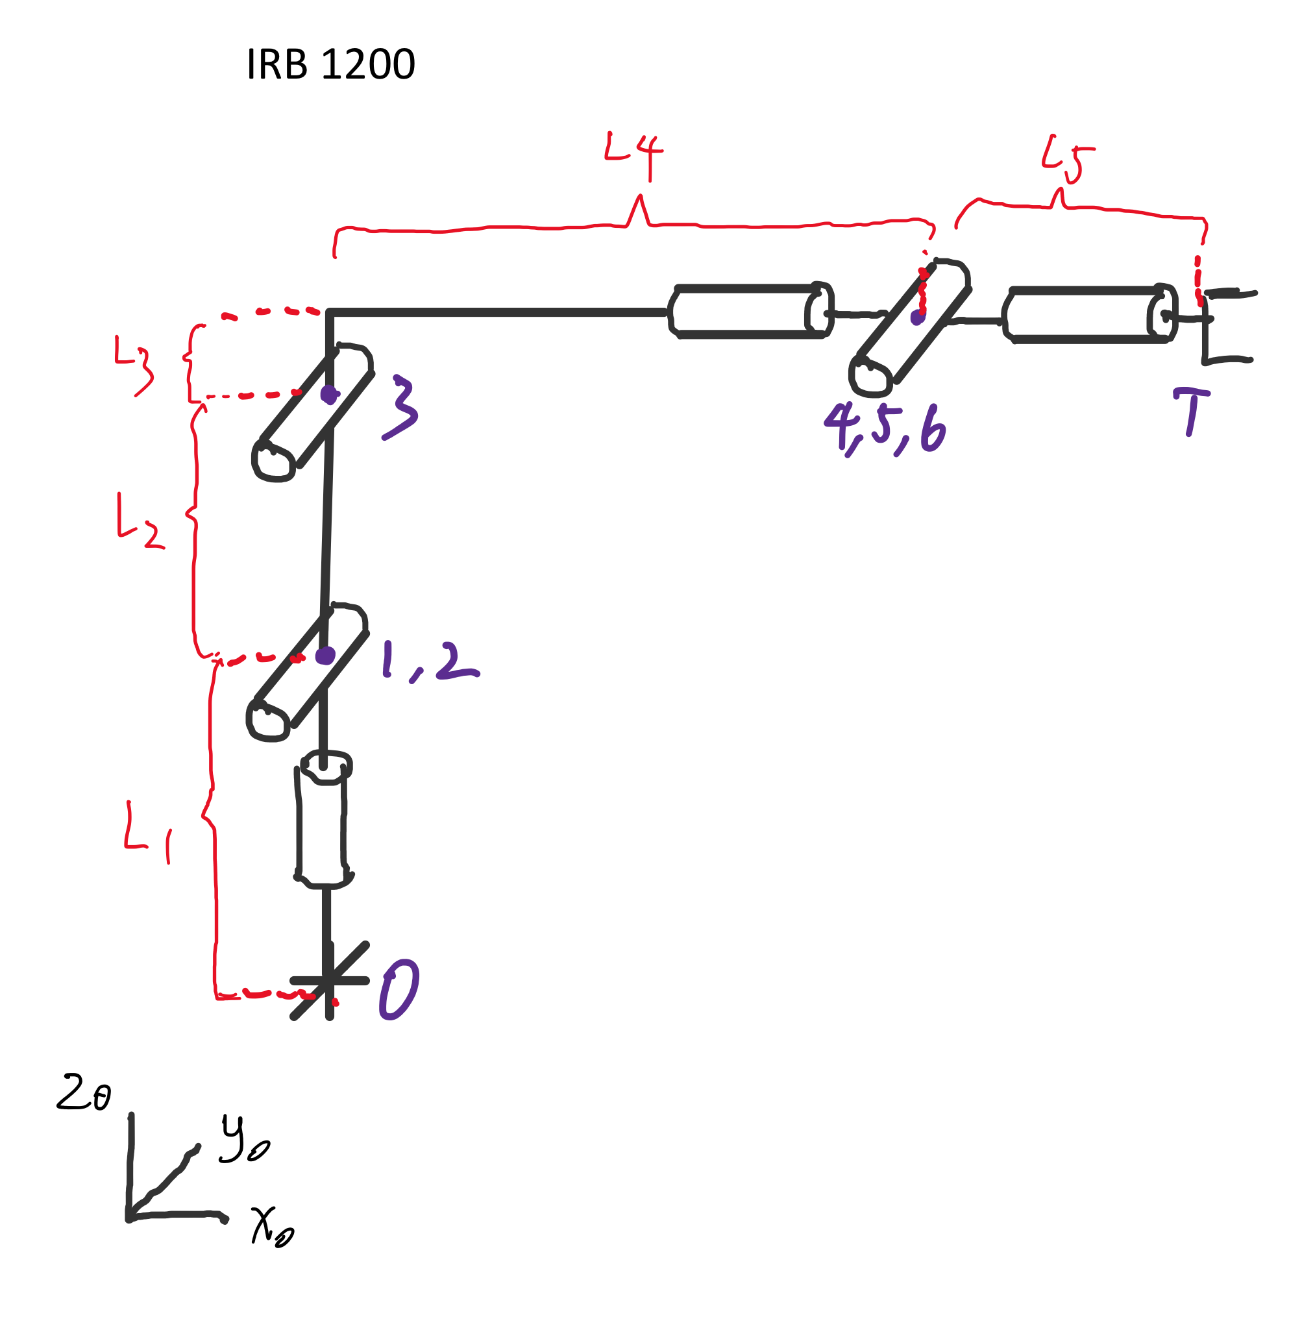 IRB 1200
L4
L5
L3
3
4,5,6
T
L2
1,2
L1
0
z0
y0
x0